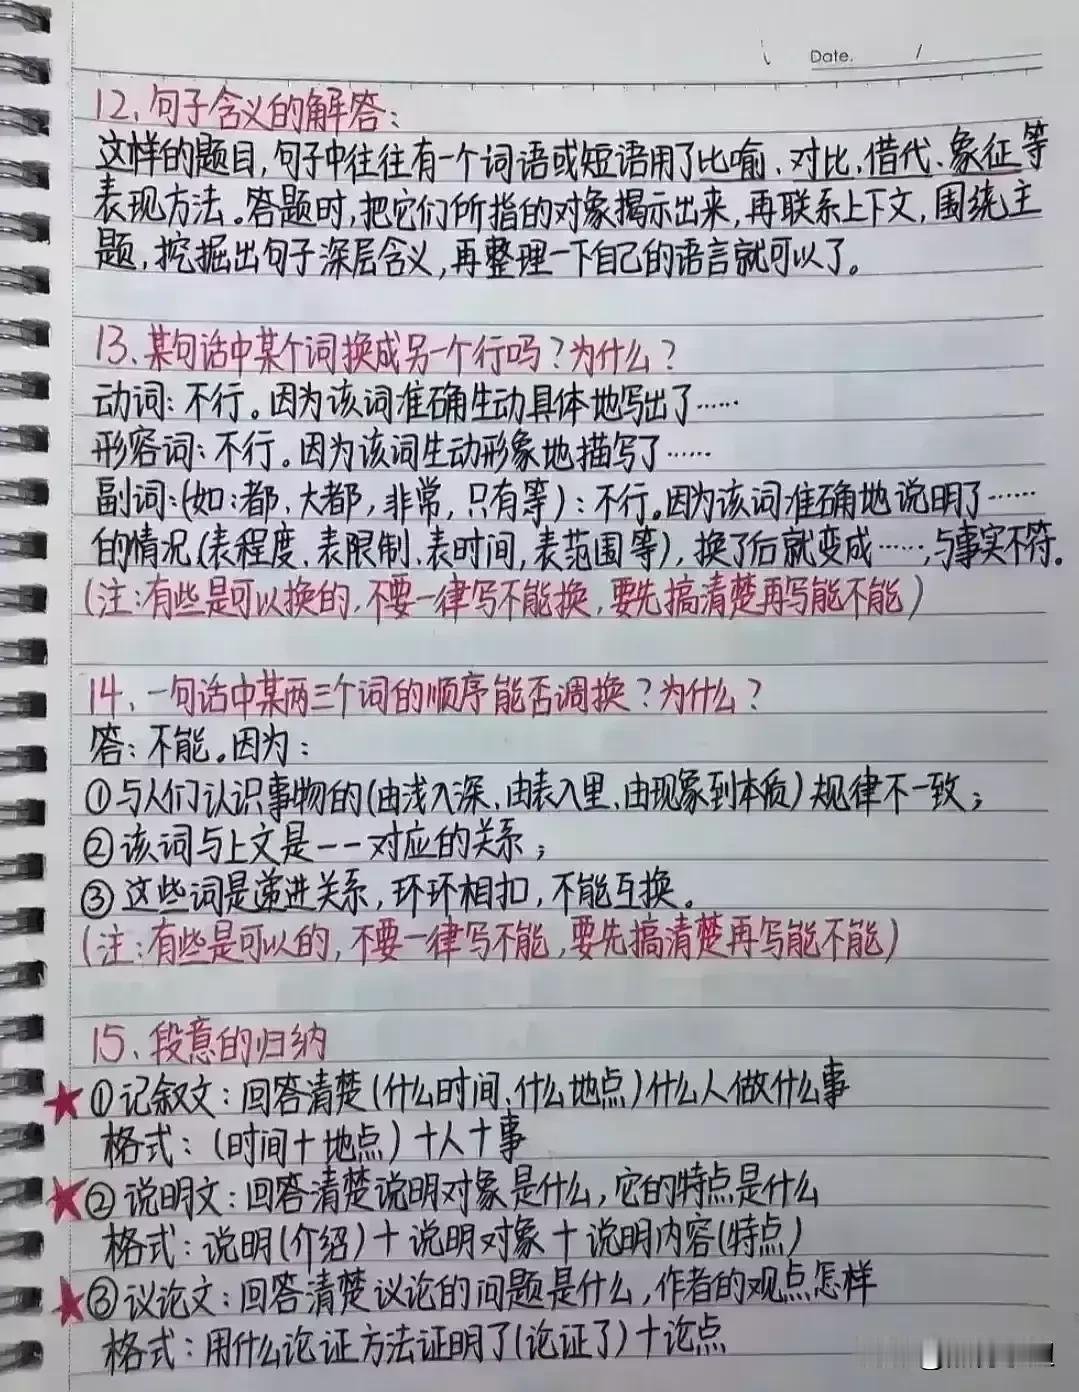 Date. /
12、句子含义的解答：
这样的题目，句子中往往有一个词语或短语用了比喻、对比、借代、象征等
表现方法。答题时，把它们所指的对象揭示出来，再联系上下文，围绕主
题，挖掘出句子深层含义，再整理一下自己的语言就可以了。
13、某句话中某个词换成另一个行吗？为什么？
动词：不行。因为该词准确生动具体地写出了……
形容词：不行。因为该词生动形象地描写了……
副词：(如：都，大都，非常，只有等)：不行。因为该词准确地说明了……
的情况(表程度、表限制、表时间，表范围等)，换了后就变成……，与事实不符。
(注：有些是可以换的，不要一律写不能换，要先搞清楚再写能不能)
14、一句话中某两三个词的顺序能否调换？为什么？
答：不能。因为：
①与人们认识事物的(由浅入深、由表入里、由现象到本质)规律不一致；
②该词与上文是一一对应的关系；
③这些词是递进关系，环环相扣，不能互换。
(注：有些是可以的，不要一律写不能，要先搞清楚再写能不能)
15、段意的归纳
①记叙文：回答清楚(什么时间、什么地点)什么人做什么事
格式：(时间+地点)+人+事
②说明文：回答清楚说明对象是什么，它的特点是什么
格式：说明(介绍)+说明对象+说明内容(特点)
③议论文：回答清楚议论的问题是什么，作者的观点怎样
格式：用什么论证方法证明了(论证了)+论点